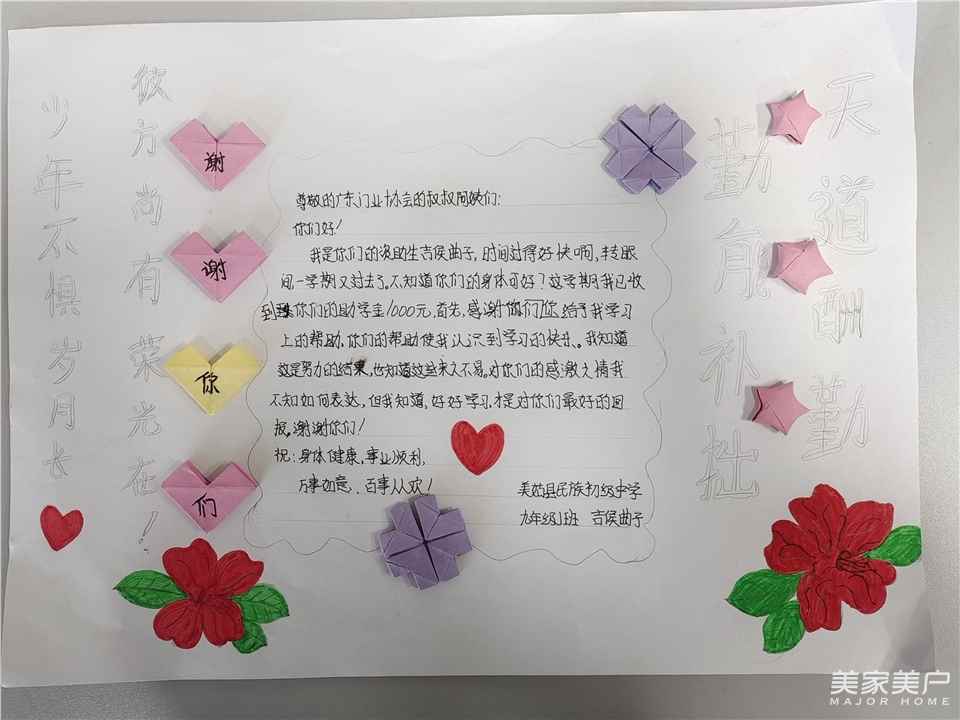 天道酬勤
勤能补拙
尊敬的广东门业协会的叔叔阿姨们:
你们好!
我是你们的资助生吉侯曲子,时间过得好快啊,转眼
间一学期又过去了。不知道你们的身体可好?这学期我已收
到你们的助学金1000元,首先,感谢你们给予我学习
上的帮助,你们的帮助使我认识到学习的快乐。我知道
这是努力的结果,也知道这些来之不易。对你们的感激之情我
不知如何表达,但我知道,好好学习,才是对你们最好的回
报。谢谢你们!
祝:身体健康,事业顺利,
万事如意、百事从欢!
美姑县民族初级中学
九年级1班 吉侯曲子
谢
谢
你
们
彼方尚有荣光在!
少年不惧岁月长
美家美户
MAJOR HOME